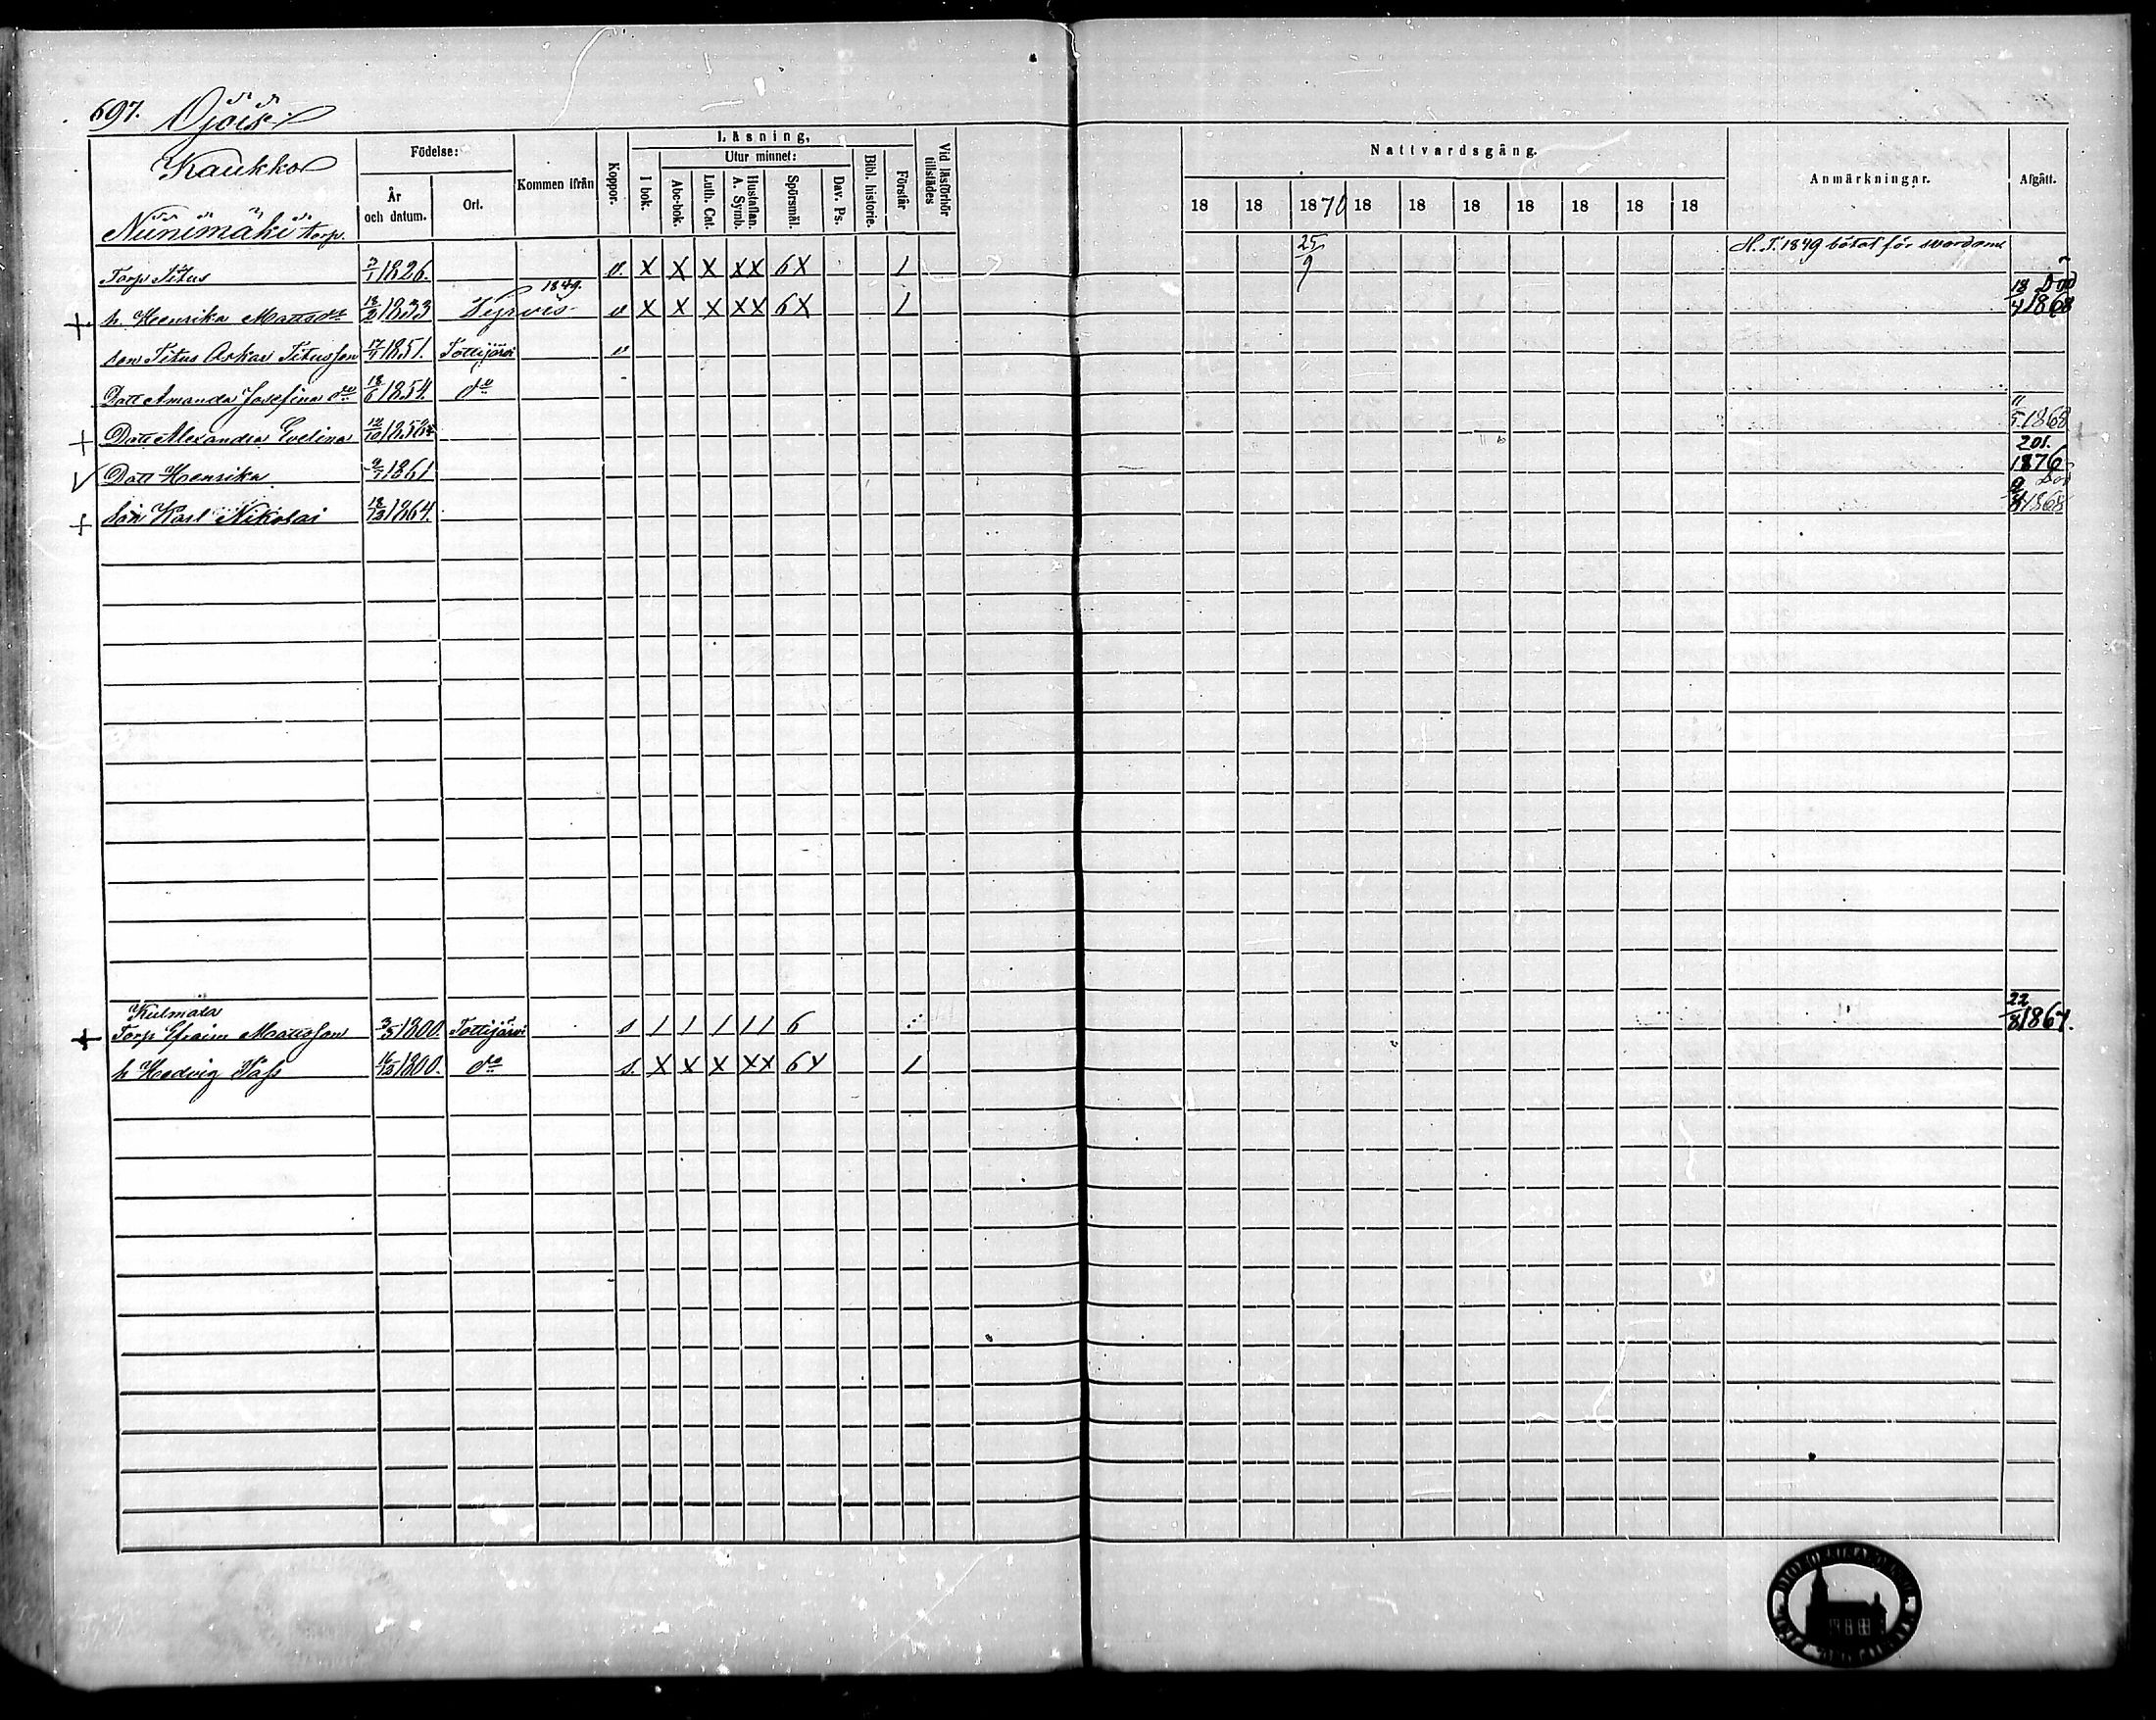 697. Ojois
Kaukko
Niinimäki torp.
Födelse:
År och datum.
Ort.
Kommen ifrån
Koppor.
Läsning,
I bok.
Utur minnet:
Abc-bok.
Luth. Cat.
Hustaflan. A. Symb.
Spörsmål.
Dav. Ps.
Bibl. historie.
Förstår
Vid läsförhör tillstädes
Nattvardsgång.
18 18 1870 18 18 18 18 18 18 18
Anmärkningar.
Afgått.
Torp Titus 1826. v. X X X XX 6X 1 25/9 H. T. 1849 bötat för svordom
+ h. Henrika Mattsdr 1833 1849. v X X X XX 6X 1 18/4 Död 1868
son Titus Oskar Titusson 1851. Tottijärvi v
Dott Amanda Josefina 18/6 1854. do
+ Dott Alexandra Evelina 12/10 1858 1868
√ Dott Henrika 1861 201. 1876
+ Son Karl Nikolai 1864. Död 1868
Kulmala
+ Torp Efraim Mattsson 3/5 1800. Tottijärvi s 1 1 1 11 6 22/8 1867.
h Hedvig 1800. do s. X X X XX 6X 1